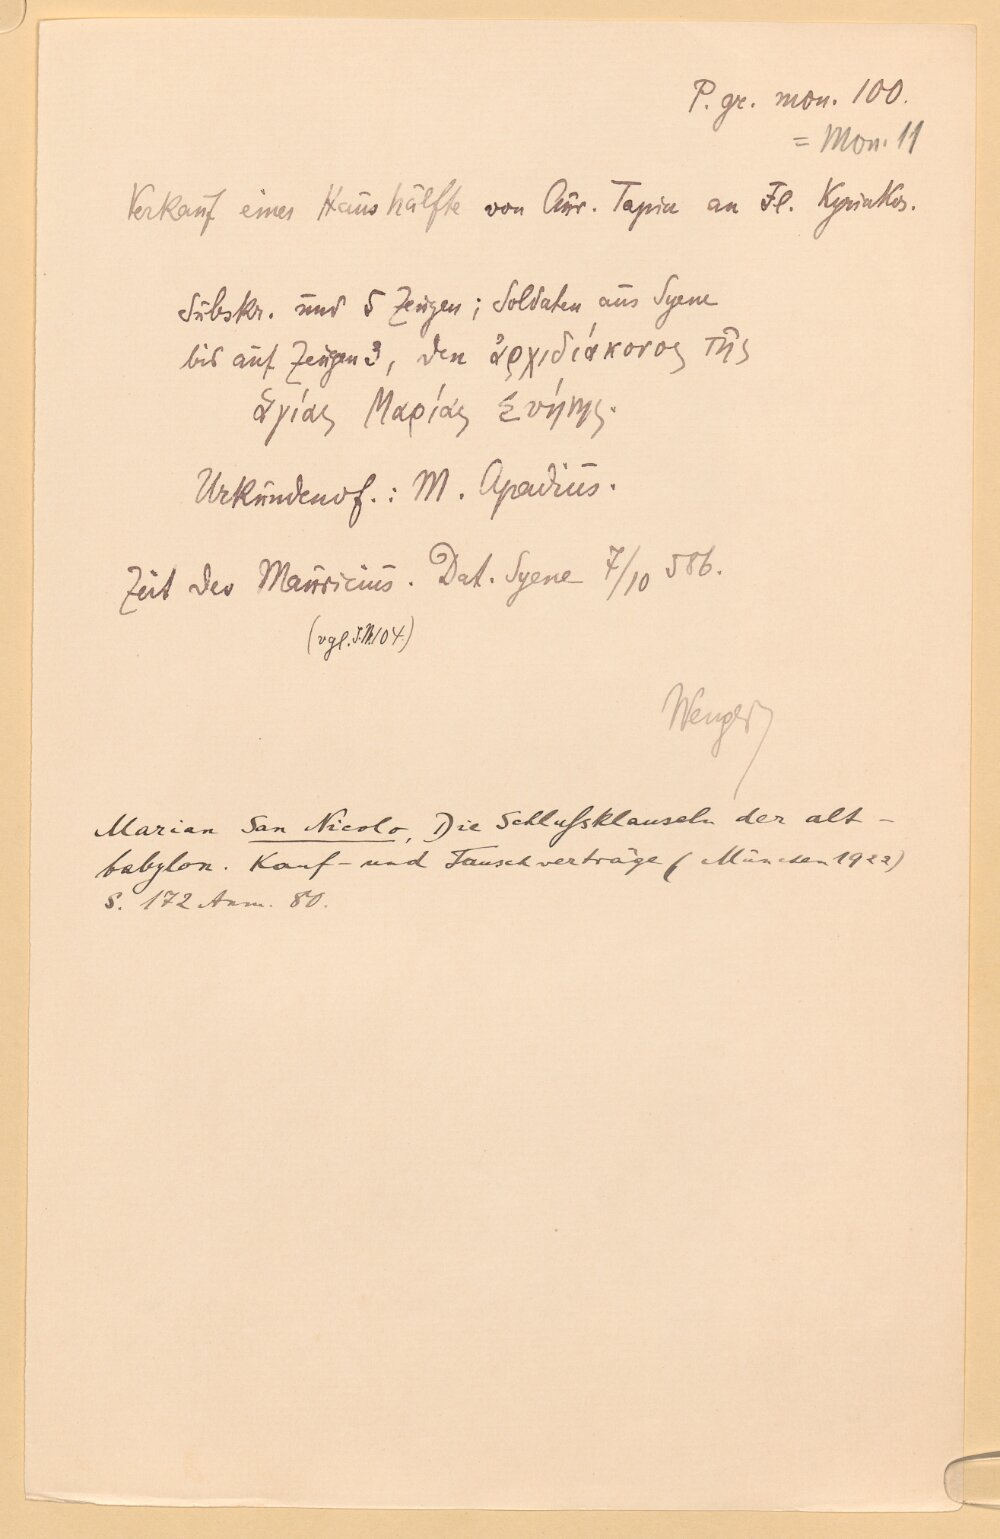 P. gr. mon. 100.
= Mon. 11
Verkauf einer Haushälfte von Aur. Tapia an Fl. Kyriakos.
Subskr. und 5 Zeugen; Soldaten aus Syene
bis auf Zeugen 3, den ἀρχιδιάκονος τῆς
ἁγίας Μαρίας Συήνης.
Urkundenvf.: M. Apadius.
Zeit des Mauricius. Dat. Syene 7/10 586.
(vgl. 104)
Wenger
Marian San Nicolo, Die Schlußklauseln der alt-
babylon. Kauf- und Tauschverträge (München 1922)
S. 172 Anm. 80.